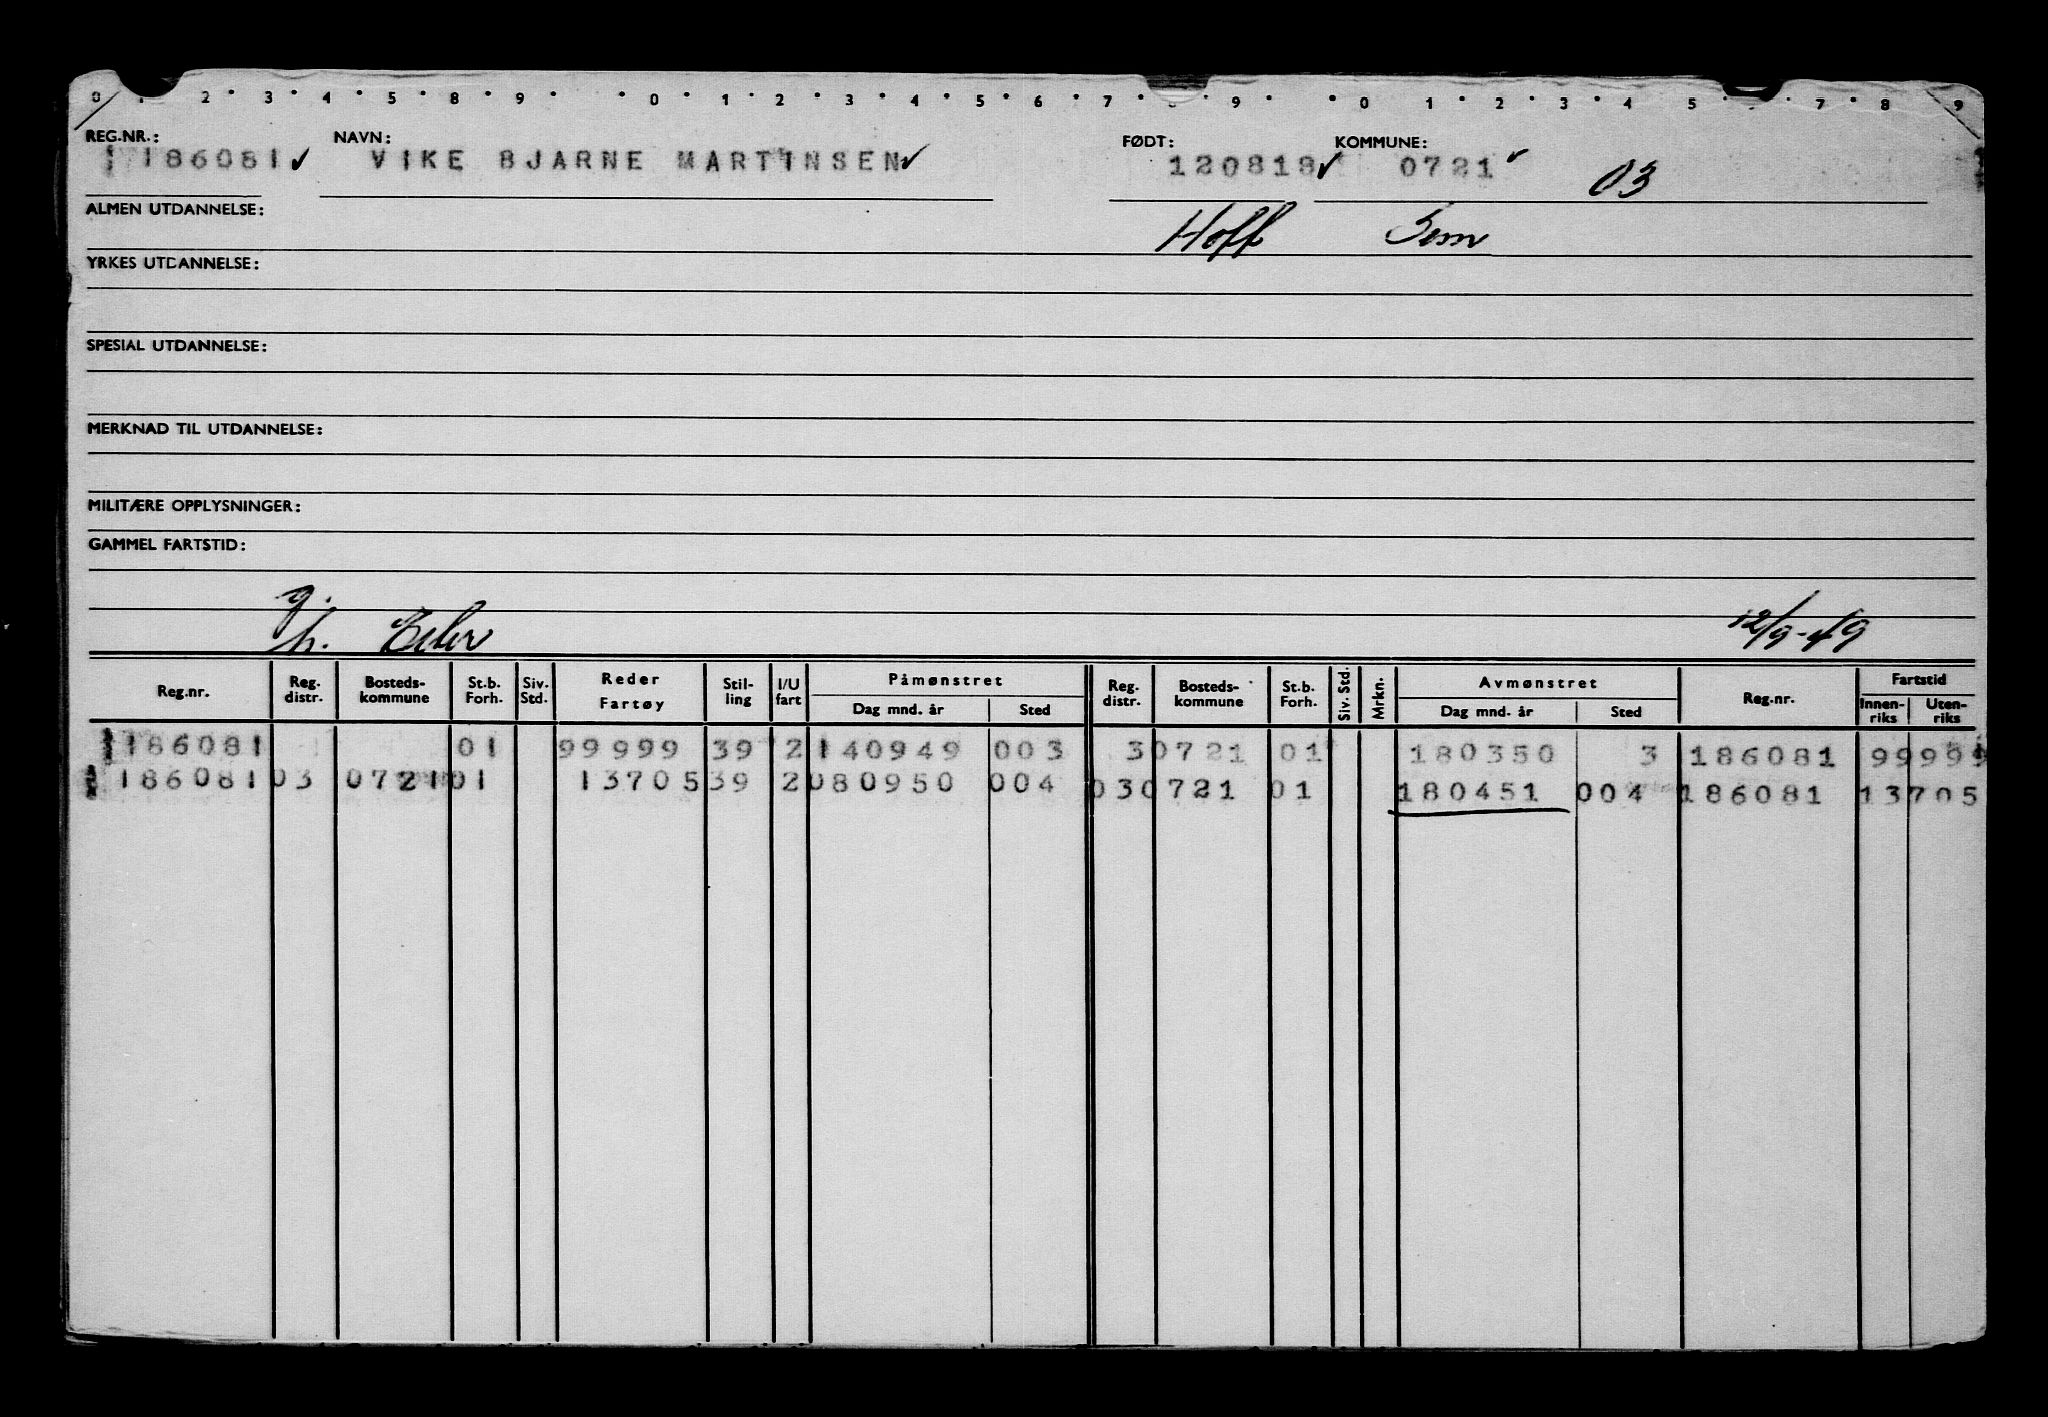 0 1 2 3 4 5 6 7 8 9 0 1 2 3 4 5 6 7 8 9 0 1 2 3 4 5 7 8 9
REG.NR.: NAVN: FØDT: KOMMUNE:
186081 VIKE BJARNE MARTINSEN 120818 0721 03
ALMEN UTDANNELSE: Hoff Sem
YRKES UTDANNELSE:
SPESIAL UTDANNELSE:
MERKNAD TIL UTDANNELSE:
MILITÆRE OPPLYSNINGER:
GAMMEL FARTSTID:
g.
h. 12/9-49
Reg.nr. Reg. distr. Bosteds- kommune St.b. Forh. Siv. Std. Reder Fartøy Stil- ling I/U fart Påmønstret Dag mnd. år Sted Reg. distr. Bosteds- kommune St.b. Forh. Siv. Std. Mrkn. Avmønstret Dag mnd. år Sted Reg.nr. Fartstid Innen- riks Uten- riks
186081 01 99999 39 2 140949 003 3 0721 01 180350 3 186081 99999
186081 03 0721 01 13705 39 2 080950 004 03 0721 01 180451 004 186081 13705